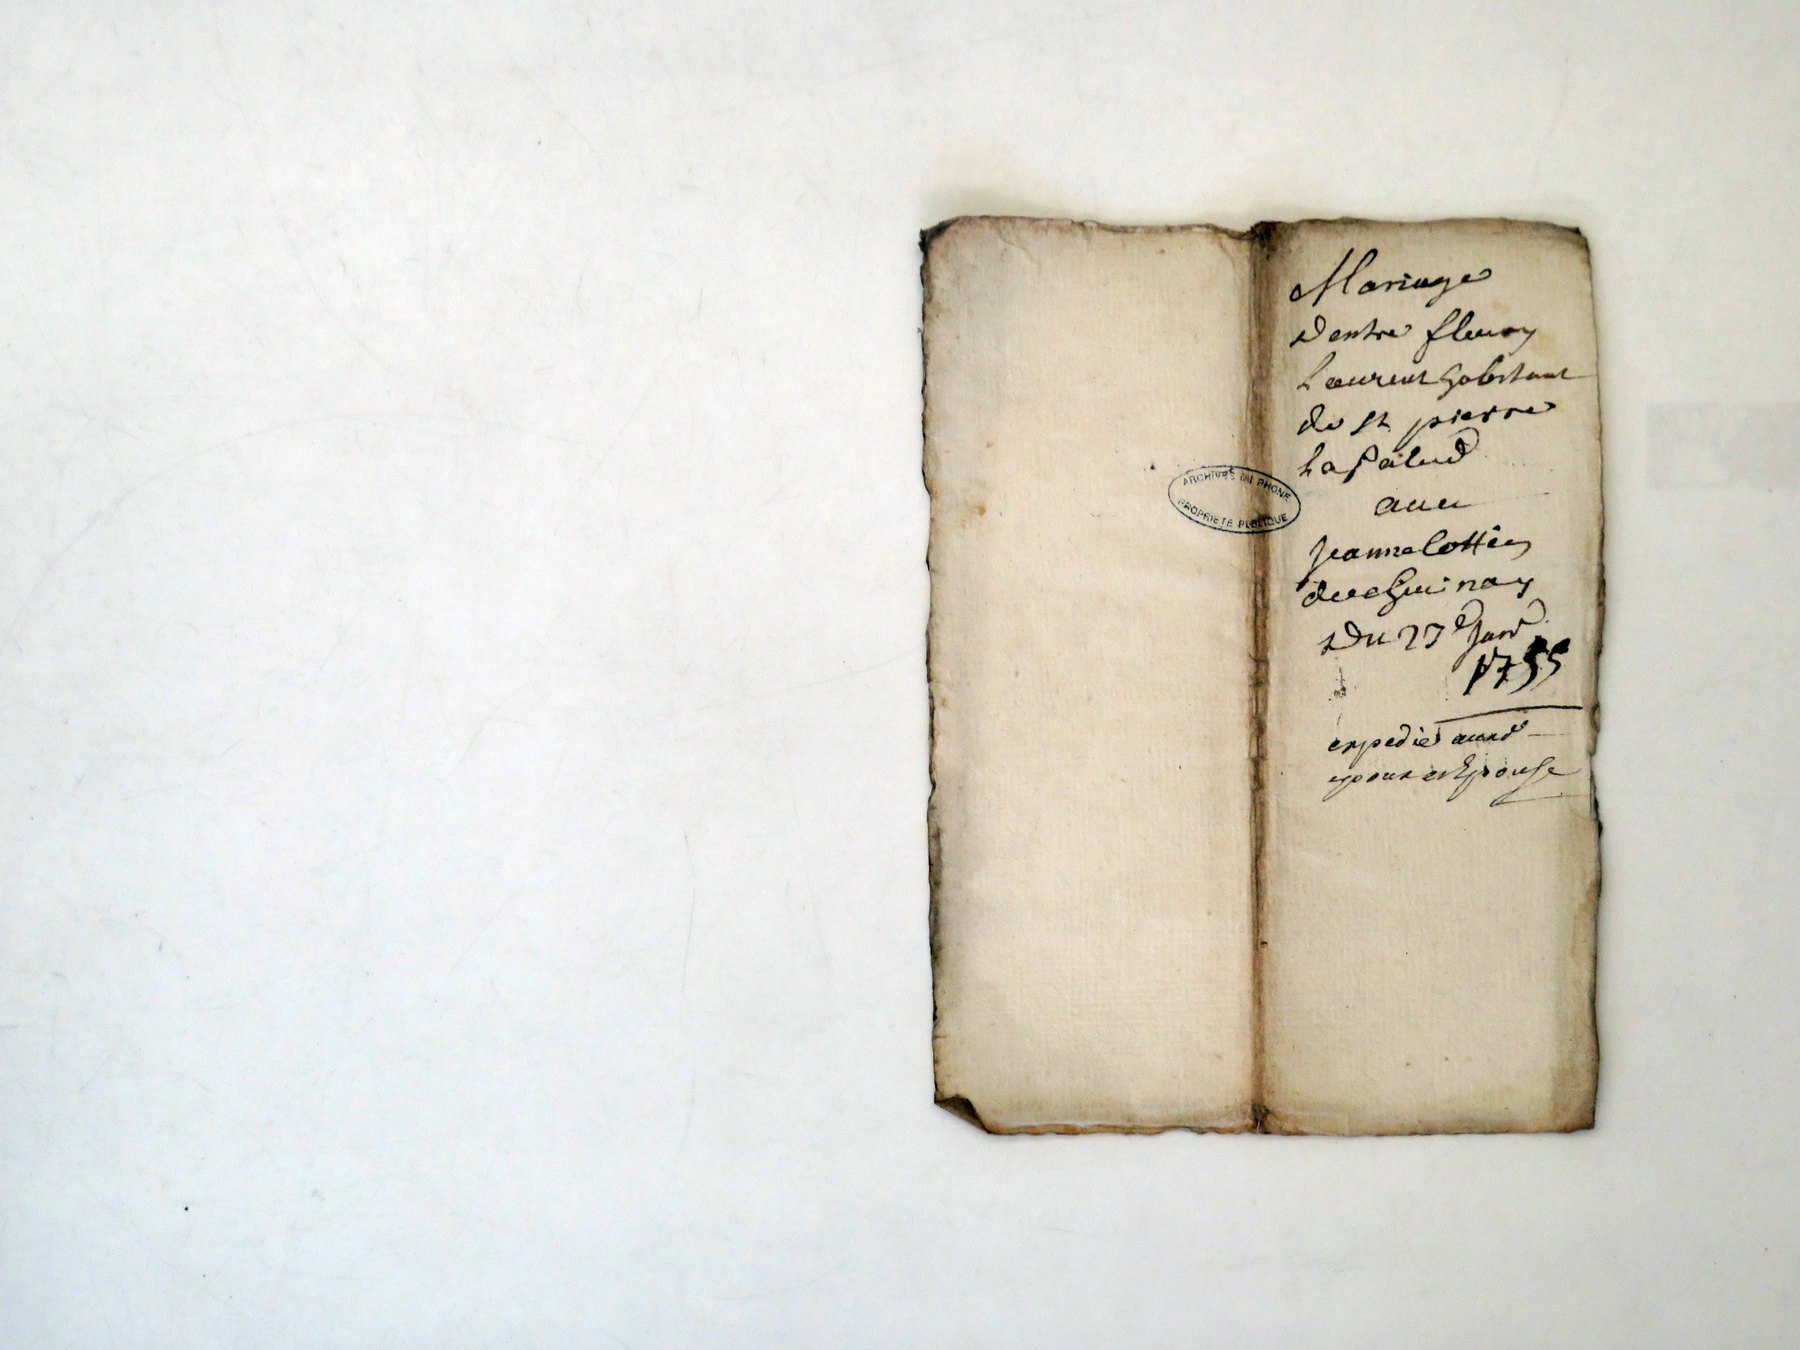 Mariage
dentre fleury
Laurent habitant
de St pierre
La Palud
avec
Jeanne Cottin
de chuinay
du 27e Janv
1755
expedié auxd
epoux et Epouse
ARCHIVES DU RHONE
PROPRIETE PUBLIQUE